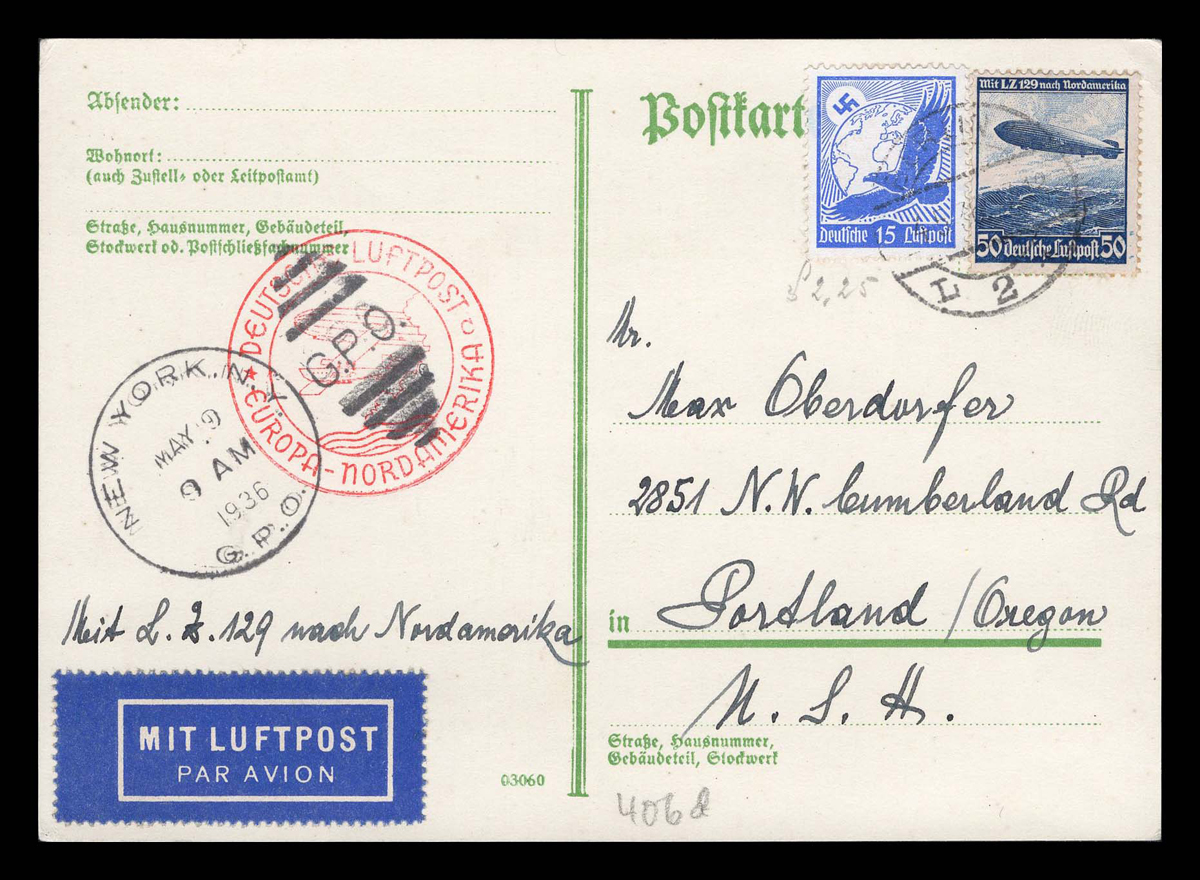 Absender:
Wohnort:
(auch Zustell- oder Leitpostamt)
Straße, Hausnummer, Gebäudeteil,
Stockwerk od. Postschließfachnummer
DEUTSCHE LUFTPOST
EUROPA-NORDAMERIKA
G.P.O.
NEW YORK, N.Y.
MAY 9
9 AM
1936
G.P.O.
Mit L. Z. 129 nach Nordamerika
MIT LUFTPOST
PAR AVION
03060
Postkart
Deutsche 15 Luftpost
Mit LZ 129 nach Nordamerika
50 Deutsche Luftpost 50
L 2
2,25
Mr.
Max Oberdorfer
2851 N.W. Cumberland Rd
in Portland / Oregon
U. S. A.
Straße, Hausnummer,
Gebäudeteil, Stockwerk
406d